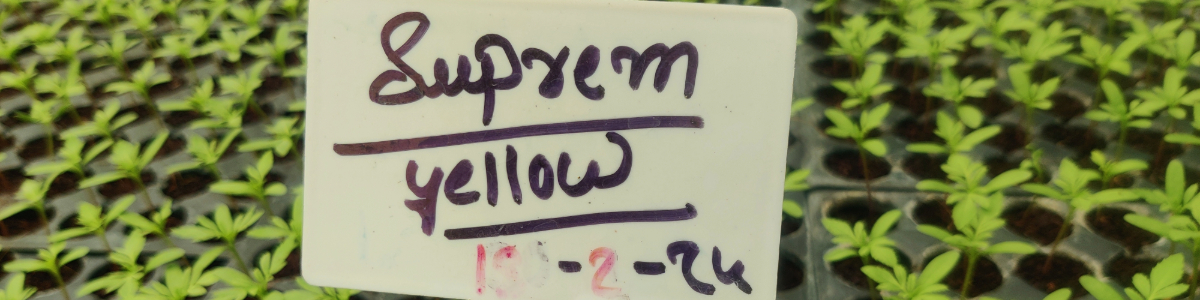 Suprem
yellow
-2-24